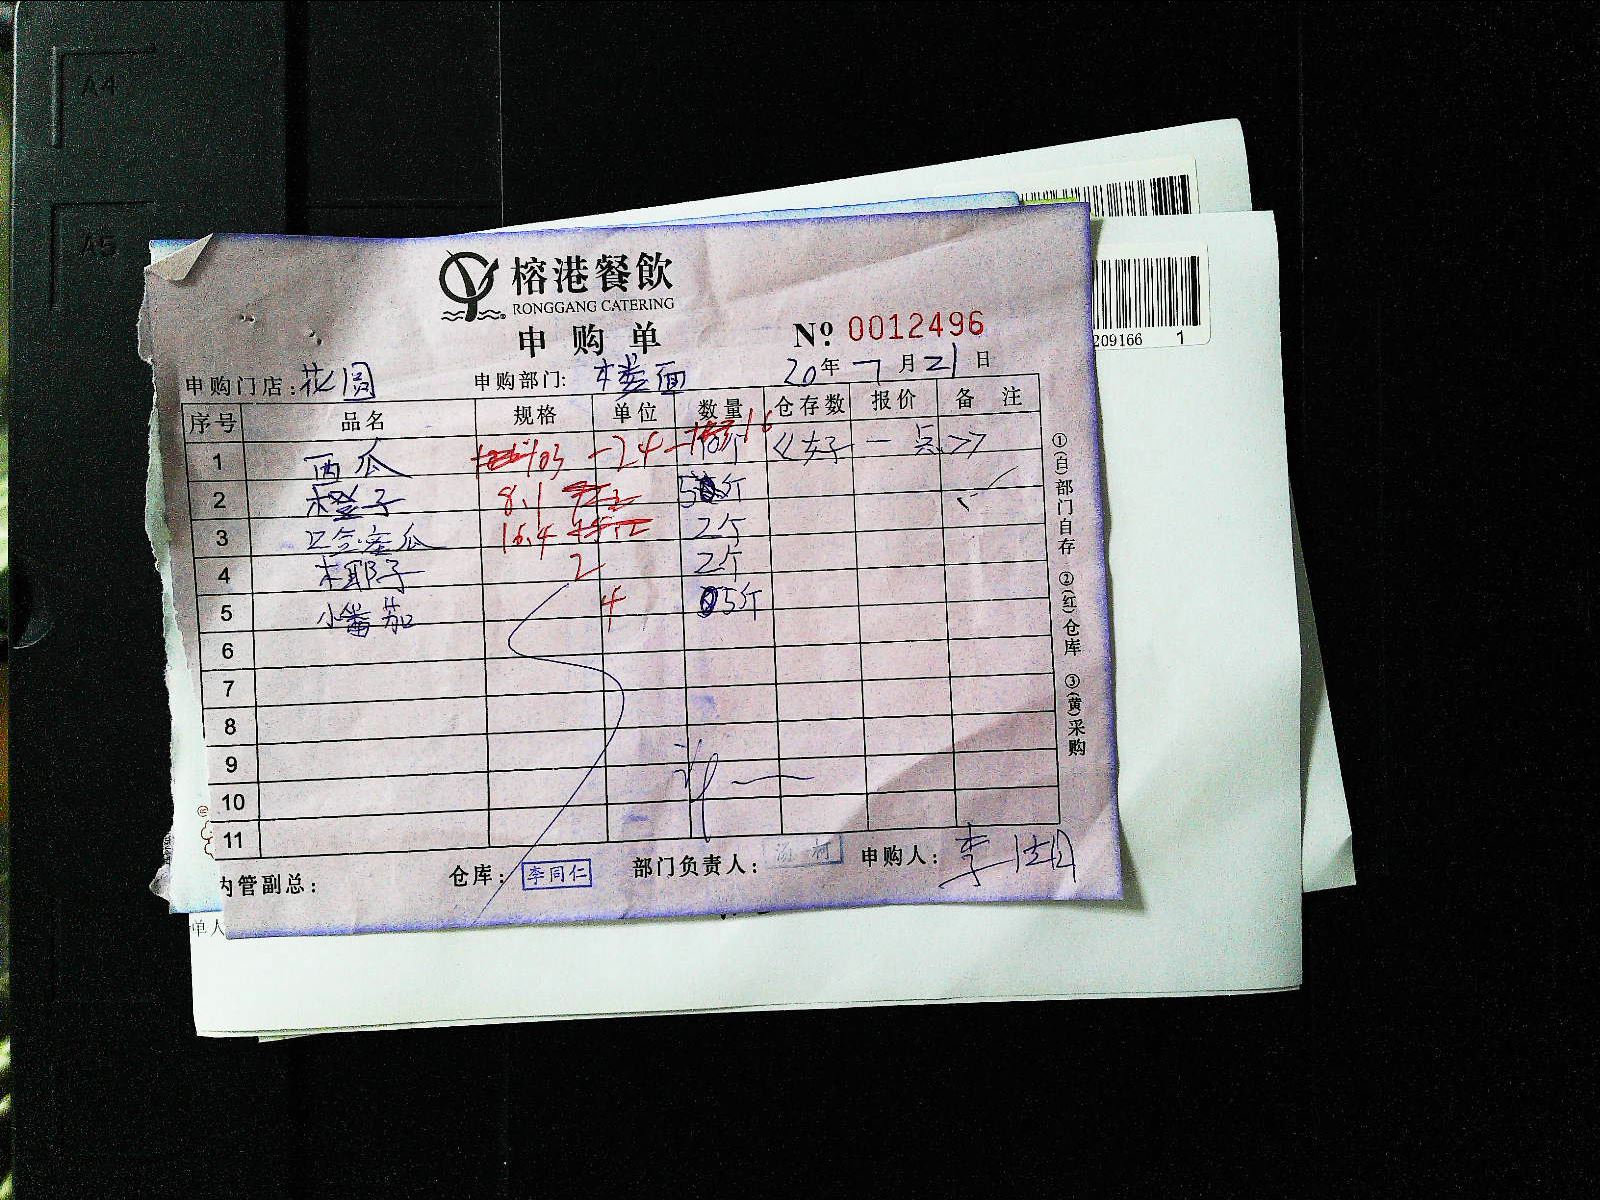 A4
A5
榕港餐飲
RONGGANG CATERING
申购单
№ 0012496
209166 1
申购门店:花圆 申购部门:楼面 20年7月21日
序号 品名 规格 单位 数量 仓存数 报价 备注
1 西瓜 103 -24- 16 《好一点》
2 橙子 8.1 5斤
3 哈密瓜 16.4 2个
4 木耶子 2 2个
5 小番茄 4 5斤
6
7
8
9
10
11
①(白)部门自存 ②(红)仓库 ③(黄)采购
内管副总: 仓库: 李同仁 部门负责人: 申购人:
单人